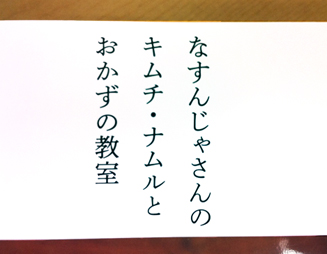 なすんじゃさんの
キムチ・ナムルと
おかずの教室